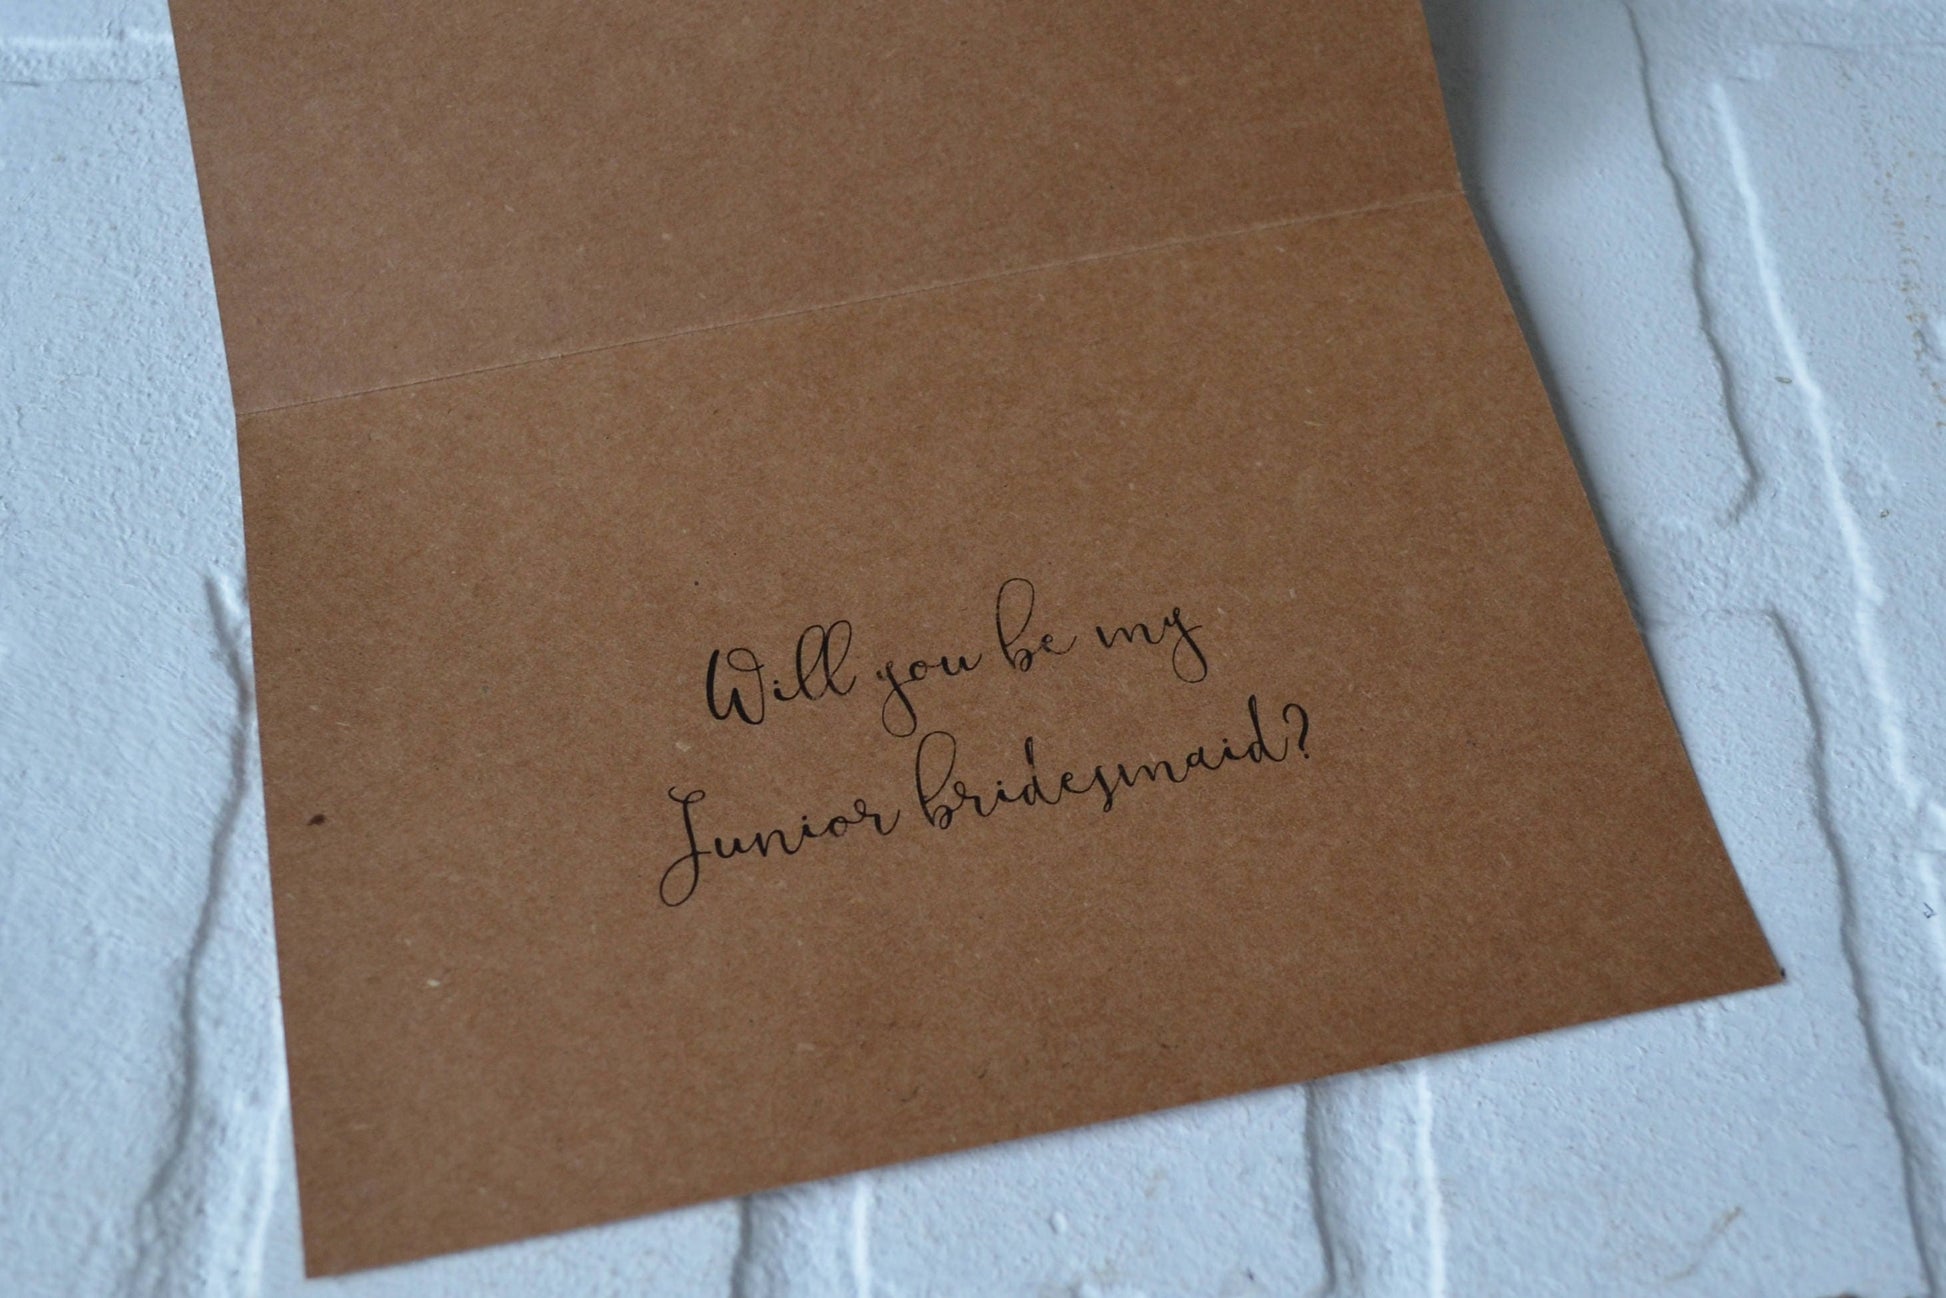 Will you be my
Junior bridesmaid?